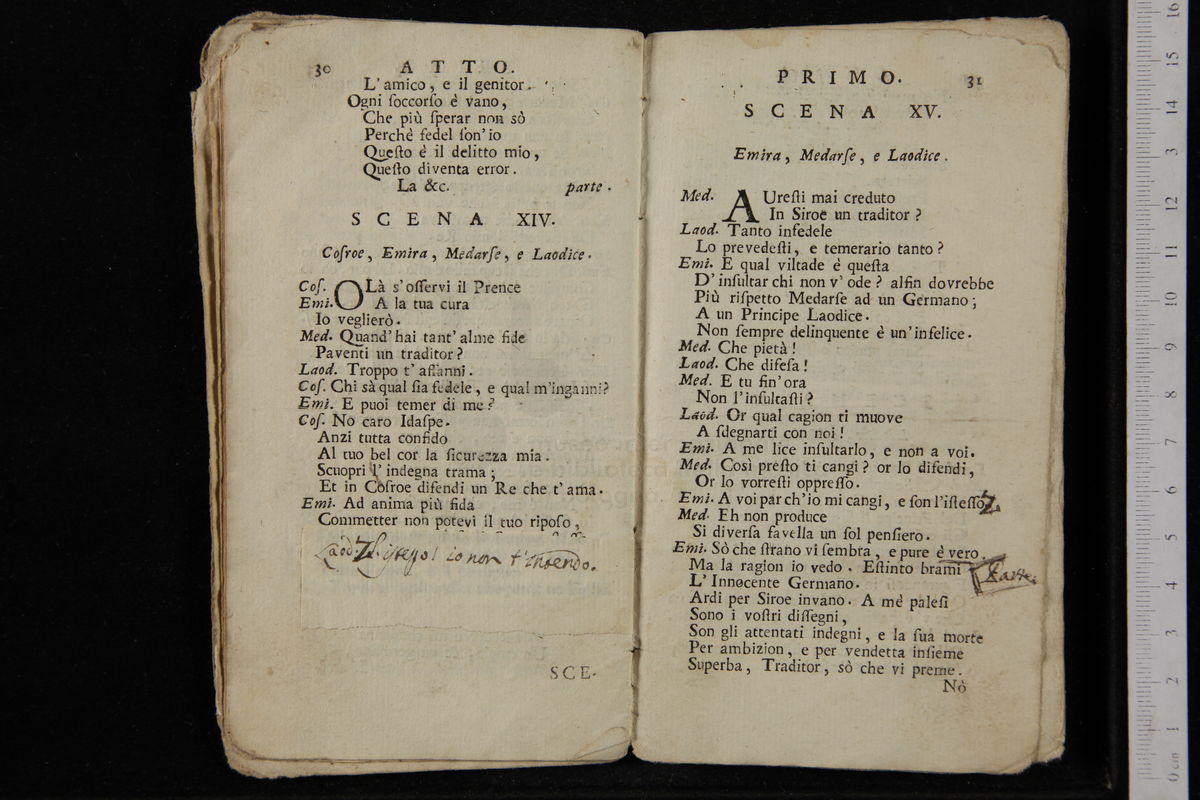 30 ATTO.
L' amico, e il genitor.
Ogni ſoccorſo è vano,
Che più ſperar non sò
Perchè fedel ſon' io
Queſto è il delitto mio,
Queſto diventa error.
La &c. parte.
SCENA XIV.
Coſroe, Emira, Medarſe, e Laodice.
Coſ. OLà s' oſſervi il Prence
Emi. A la tua cura
Io veglierò.
Med. Quand' hai tant' alme fide
Paventi un traditor?
Laod. Troppo t' affanni.
Coſ. Chi sà qual ſia fedele, e qual m'inganni?
Emi. E puoi temer di me?
Coſ. No caro Idaſpe.
Anzi tutta confido
Al tuo bel cor la ſicurezza mia.
Scuopri l' indegna trama;
Et in Coſroe difendi un Re che t' ama.
Emi. Ad anima più fida
Commetter non potevi il tuo ripoſo,
Laod. L'istesso! io non t'intendo.
SCE-
PRIMO. 31
SCENA XV.
Emira, Medarſe, e Laodice.
Med. AUreſti mai creduto
In Siroe un traditor?
Laod. Tanto infedele
Lo prevedeſti, e temerario tanto?
Emi. E qual viltade è queſta
D' inſultar chi non v' ode? alfin dovrebbe
Più riſpetto Medarſe ad un Germano;
A un Principe Laodice.
Non ſempre delinquente è un' infelice.
Med. Che pietà!
Laod. Che difeſa!
Med. E tu fin' ora
Non l' inſultaſti?
Laod. Or qual cagion ti muove
A ſdegnarti con noi!
Emi. A me lice inſultarlo, e non a voi.
Med. Così preſto ti cangi? or lo difendi,
Or lo vorreſti oppreſſo.
Emi. A voi par ch' io mi cangi, e ſon l' iſteſſo
Med. Eh non produce
Si diverſa favella un ſol penſiero.
Emi. Sò che ſtrano vi ſembra, e pure è vero.
Ma la ragion io vedo. Eſtinto brami
L' Innocente Germano.
Ardi per Siroe invano. A mè paleſi
Sono i voſtri diſſegni,
Son gli attentati indegni, e la ſua morte
Per ambizion, e per vendetta inſieme
Superba, Traditor, sò che vi preme.
Nò
0 cm 1 2 3 4 5 6 7 8 9 10 11 12 13 14 15 16